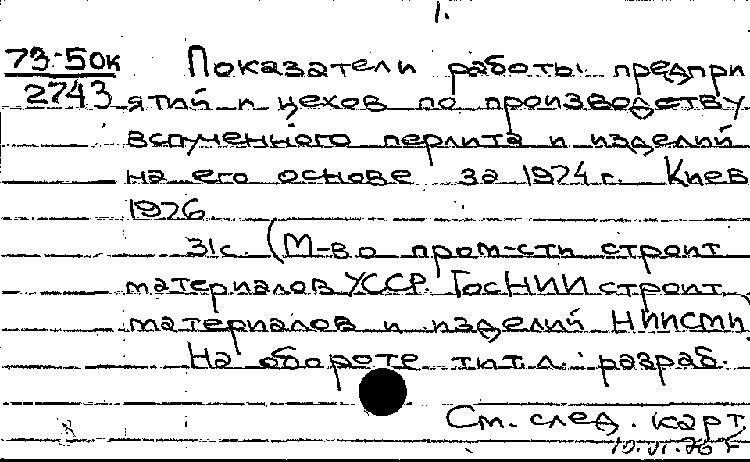 1.
73-50к Показатели работы предпри
2743 ятий и цехов по производству
вспученного перлита и изделий
на его основе за 1974 г. Киев
1976
31с. (М-во пром-сти строит
материалов УССР. ГосНИИ строит
материалов и изделий НИИСМИ)
На обороте тит.л.: разраб.
См. след. карт
10.VI.76 г